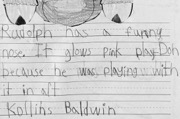 Rudolph has a funny
nose. It glows pink play-Doh
because he was playing with
it in art
Kollins Baldwin